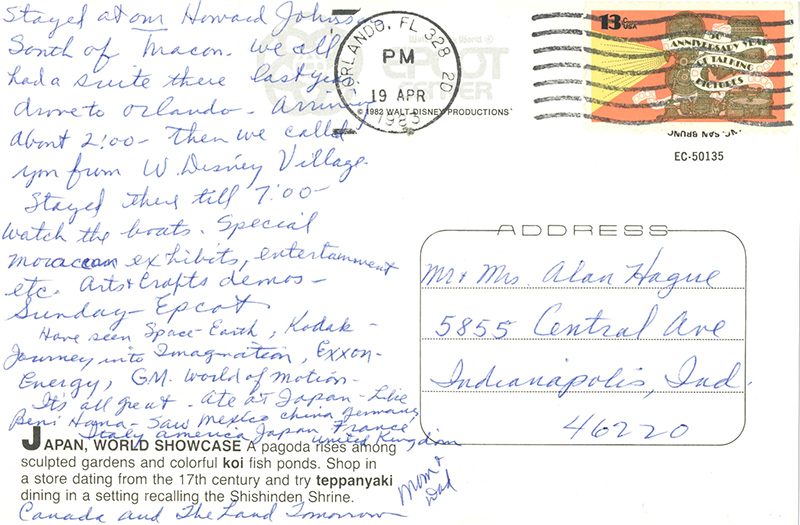 Stayed at our Howard Johnson
South of Macon. We all
had a suite there last year
drove to Orlando - Arrived
about 2:00 - Then we called
you from W. Disney Village.
Stayed there till 7:00 -
Watch the boats. Special
moroccan exhibits, entertainment
etc. Arts & Crafts demos -
Sunday - Epcot
Have seen Space-Earth, Kodak -
Journey into Imagination, Exxon -
Energy, G.M. World of Motion -
It's all great - Ate at Japan - Like
Beni Hana - Saw Mexico China Germany
Italy America Japan France
United Kingdom
JAPAN, WORLD SHOWCASE A pagoda rises among
sculpted gardens and colorful koi fish ponds. Shop in
a store dating from the 17th century and try teppanyaki
dining in a setting recalling the Shishinden Shrine.
Canada and The Land Tomorrow
Mom &
Dad
World
EPCOT
CENTER
© 1982 WALT DISNEY PRODUCTIONS
ORLANDO, FL 328 20
PM
19 APR
1983
13c USA
50th
ANNIVERSARY YEAR
OF TALKING
PICTURES
INC. SAN BRUNO
EC-50135
ADDRESS
Mr & Mrs. Alan Hague
5855 Central Ave
Indianapolis, Ind.
46220